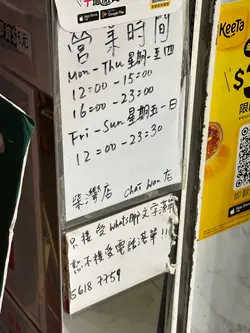 營業時間
Mon-Thu 星期一至四
12:00-15:00
16:00-23:00
Fri-Sun 星期五-日
12:00-23:30
柴灣店 Chai Wan 店
只接受WhatsApp文字落單
恕不接受電話落單!!
5618 7759
KeeTa
Google Play